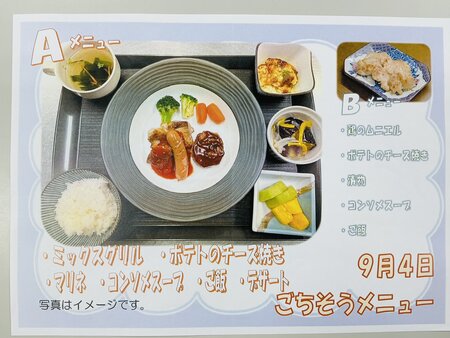 A メニュー
B メニュー
・鶏のムニエル
・ポテトのチーズ焼き
・漬物
・コンソメスープ
・ご飯
・ミックスグリル ・ポテトのチーズ焼き
・マリネ ・コンソメスープ ・ご飯 ・デザート
9月4日
ごちそうメニュー
写真はイメージです。